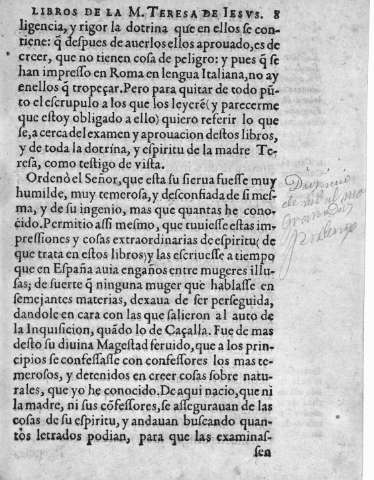 LIBROS DE LA M. TERESA DE IESVS. 8
ligencia, y rigor la dotrina que en ellos se con-
tiene: q̃ despues de auerlos ellos aprouado, es de
creer, que no tienen cosa de peligro: y pues q̃ se
han impresso en Roma en lengua Italiana, no ay
en ellos q̃ tropeçar. Pero para quitar de todo pũ
to el escrupulo a los que los leyerẽ (y parecerme
que estoy obligado a ello) quiero referir lo que
se, a cerca del examen y aprouacion destos libros,
y de toda la dotrina, y espiritu de la madre Te-
resa, como testigo de vista.
Ordenò el Señor, que esta su sierua fuesse muy
humilde, muy temerosa, y desconfiada de si mes-
ma, y de su ingenio, mas que quantas he cono-
cido. Permitio assi mesmo, que tuuiesse estas im-
pressiones y cosas extraordinarias de espiritu (de
que trata en estos libros) y las escriuesse a tiempo
que en España auia engaños entre mugeres illu-
sas; de suerte q̃ ninguna muger que hablasse en
semejantes materias, dexaua de ser perseguida,
dandole en cara con las que salieron al auto de
la Inquisicion, quãdo lo de Caçalla. Fue de mas
desto su diuina Magestad seruido, que a los prin-
cipios se confessasse con confessores los mas te-
merosos, y detenidos en creer cosas sobre natu-
rales, que yo he conocido. De aqui nacio, que ni
la madre, ni sus cõfessores, se assegurauan de las
cosas de su espiritu, y andauan buscando quan-
tos letrados podian, para que las examinas-
sen